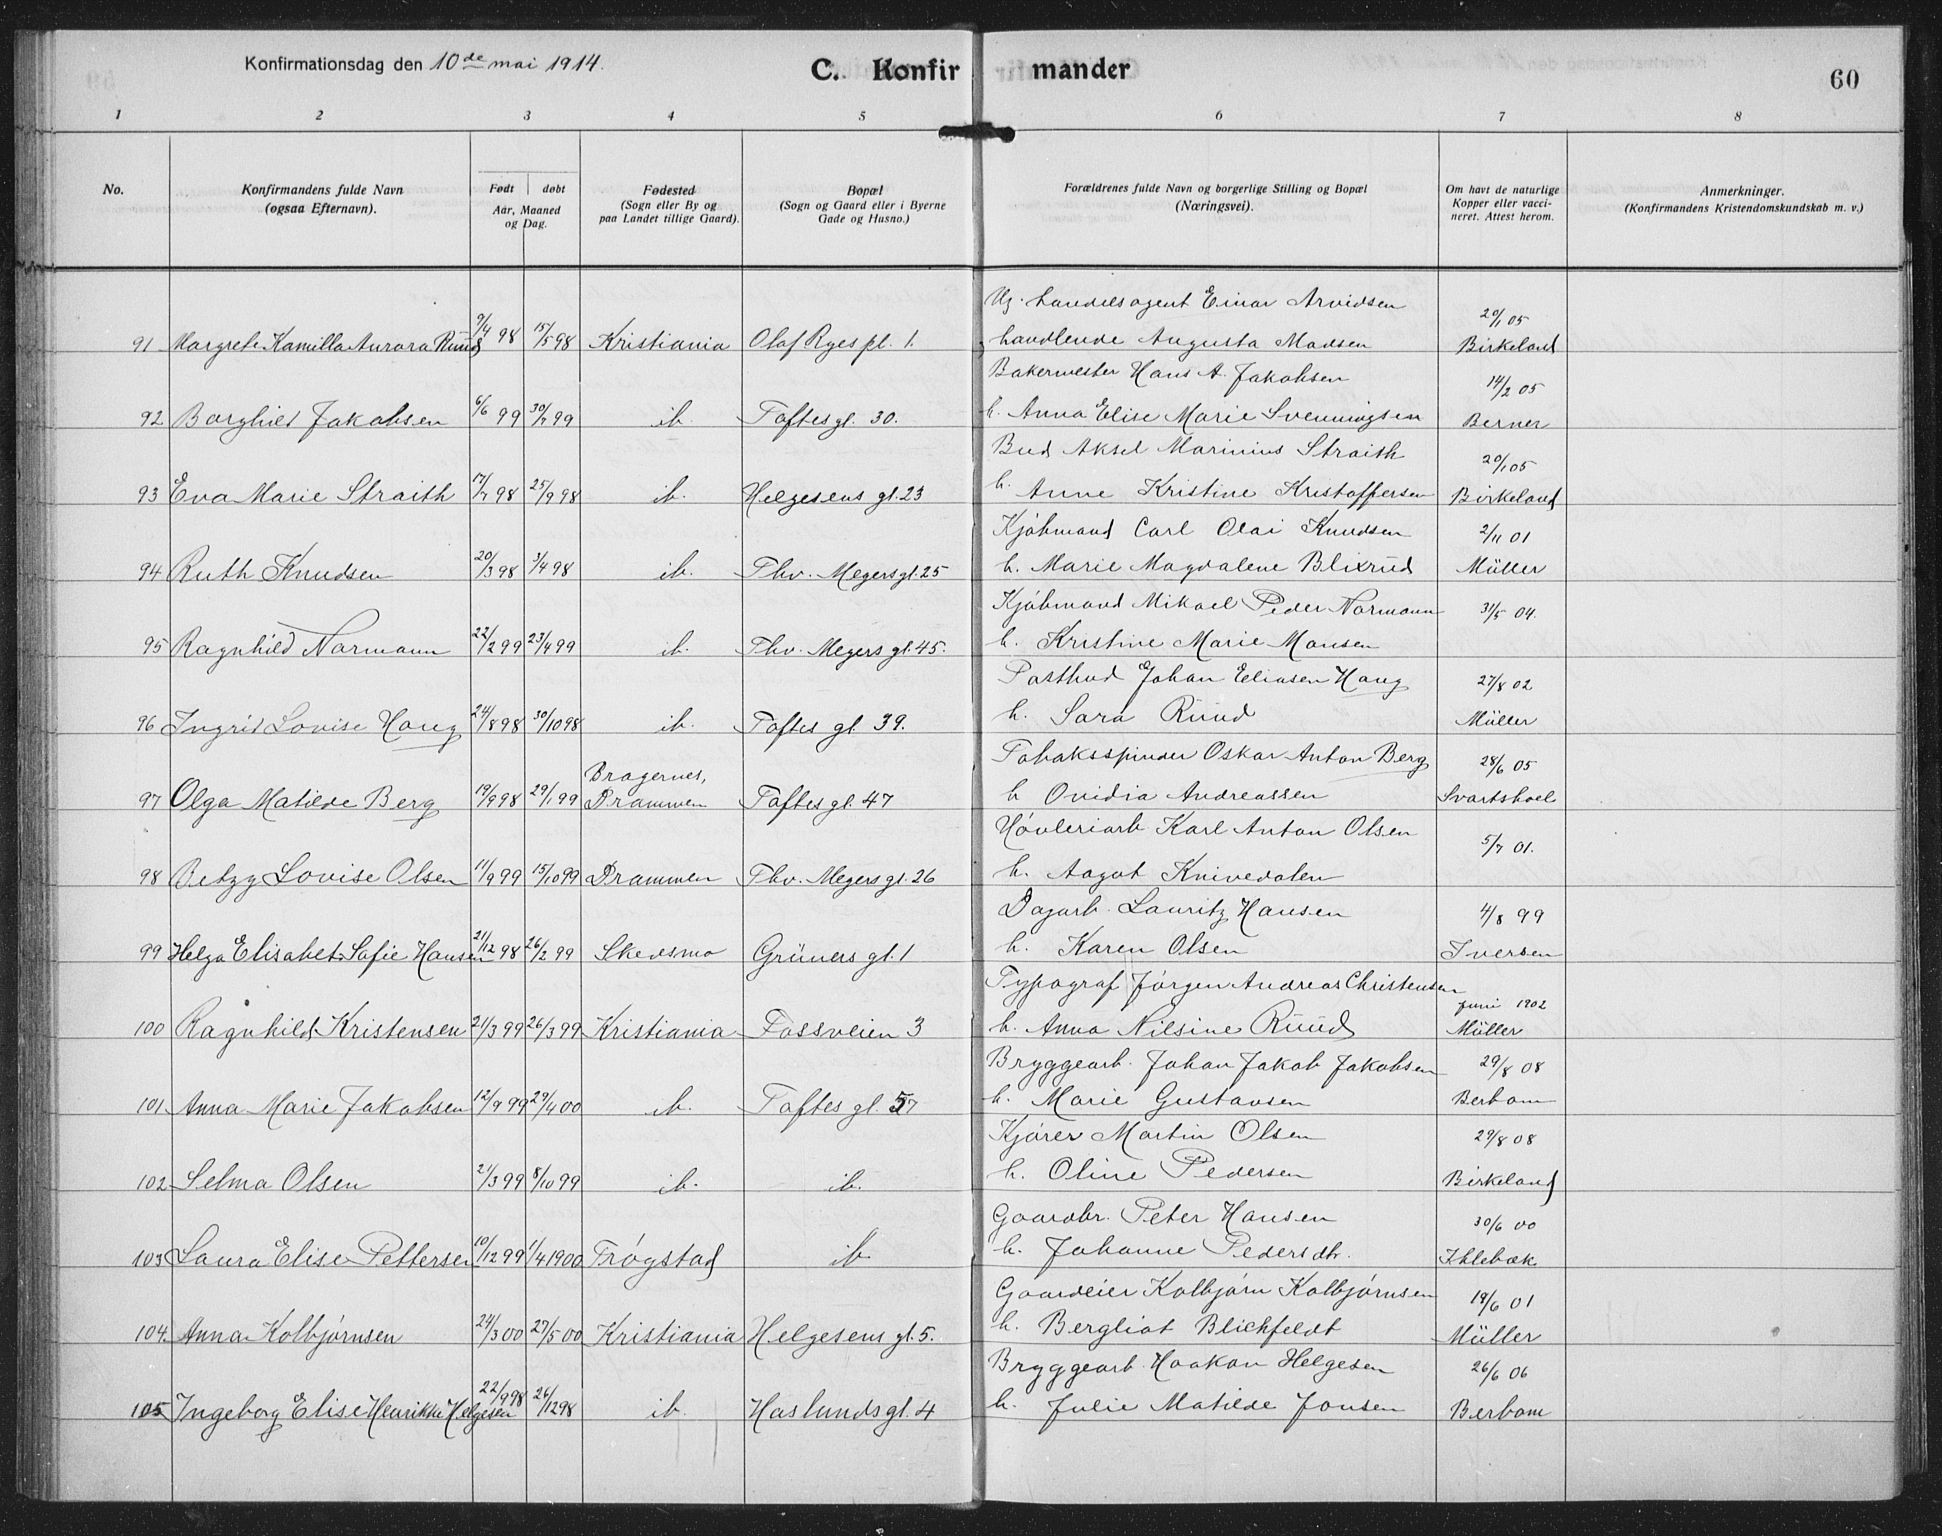 Konfirmationsdag den 10de mai 1914.
C. Konfir mander
60
1 2 3 4 5 6 7 8
No.
Konfirmandens fulde Navn
(ogsaa Efternavn).
Født døbt
Aar, Maaned
og Dag.
Fødested
(Sogn eller By og
paa Landet tillige Gaard).
Bopæl
(Sogn og Gaard eller i Byerne
Gade og Husno.)
Forældrenes fulde Navn og borgerlige Stilling og Bopæl
(Næringsvei).
Om havt de naturlige
Kopper eller vacci-
neret. Attest herom.
Anmerkninger.
(Konfirmandens Kristendomskundskab m. v.)
Ug. handelsagent Einar Arvidsen 20/1 05
91 Margrete Kamilla Aurora Ruud 9/4 98 15/5 98 Kristiania Olaf Ryes pl. 1. handlende Augusta Madsen Birkeland
Bakermester Hans A. Jakobsen 14/2 05
92 Borghild Jakobsen 6/6 99 30/7 99 ib. Toftes gl. 30. h. Anna Elise Marie Svenningsen Berner
Bud Aksel Marinius Straith 20/1 05
93 Eva Marie Straith 17/7 98 25/9 98 ib. Helgesens gl. 23 h. Anne Kristine Kristoffersen Birkeland
Kjøbmand Carl Olai Knudsen 2/11 01
94 Ruth Knudsen 20/3 98 3/4 98 ib. Thv. Meyers gl. 25 h. Marie Magdalene Blixrud Müller
Kjøbmand Mikael Peder Normann 31/5 04.
95 Ragnhild Normann 22/2 99 23/4 99 ib. Thv. Meyers gl. 45. h. Kristine Marie Monsen
Postbud Johan Eliasen Haug 27/8 02
96 Ingrid Lovise Haug 24/8 98 30/10 98 ib. Toftes gl. 39. h. Sara Ruud Müller
Tobaksspinder Oskar Anton Berg 28/6 05
97 Olga Matilde Berg 19/9 98 29/1 99 Bragernes, Drammen Toftes gl. 47 h Ovidia Andreassen Svartshoel
Høvleriarb. Karl Anton Olsen 5/7 01.
98 Betzy Lovise Olsen 11/9 99 15/10 99 Drammen Thv. Meyers gl. 26 h. Aagot Knivedalen
Dagarb. Lauritz Hansen 4/8 99
99 Helga Elisabet Sofie Hansen 21/12 98 26/2 99 Skedsmo Grüners gl. 1 h. Karen Olsen Iversen
Typograf Jørgen Andreas Christensen juni 1902
100 Ragnhild Kristensen 21/3 99 26/3 99 Kristiania Fossveien 3 h. Anna Nilsine Ruud Müller
Bryggearb. Johan Jakob Jakobsen 29/8 08
101 Anna Marie Jakobsen 12/9 99 29/4 00 ib. Toftes gl. 57 h. Marie Gustavsen Berbom
Kjører Martin Olsen 29/8 08
102 Selma Olsen 21/3 99 8/10 99 ib. ib. h. Oline Pedersen Birkeland
Gaardbr. Peter Hansen 30/6 00
103 Laura Elise Pettersen 10/12 99 1/4 1900 Trøgstad ib h. Johanne Pedersdtr. Ihlebæk
Gaardeier Kolbjørn Kolbjørnsen 19/6 01
104. Anna Kolbjørnsen 24/3 00 27/5 00 Kristiania Helgesens gl. 5. h. Bergliot Blichfeldt Müller
Bryggearb. Haakon Helgesen 26/6 06
105 Ingeborg Elise Henrikke Helgesen 22/9 98 26/12 98 ib. Haslunds gl. 4 h. Julie Matilde Jonsen Berbom